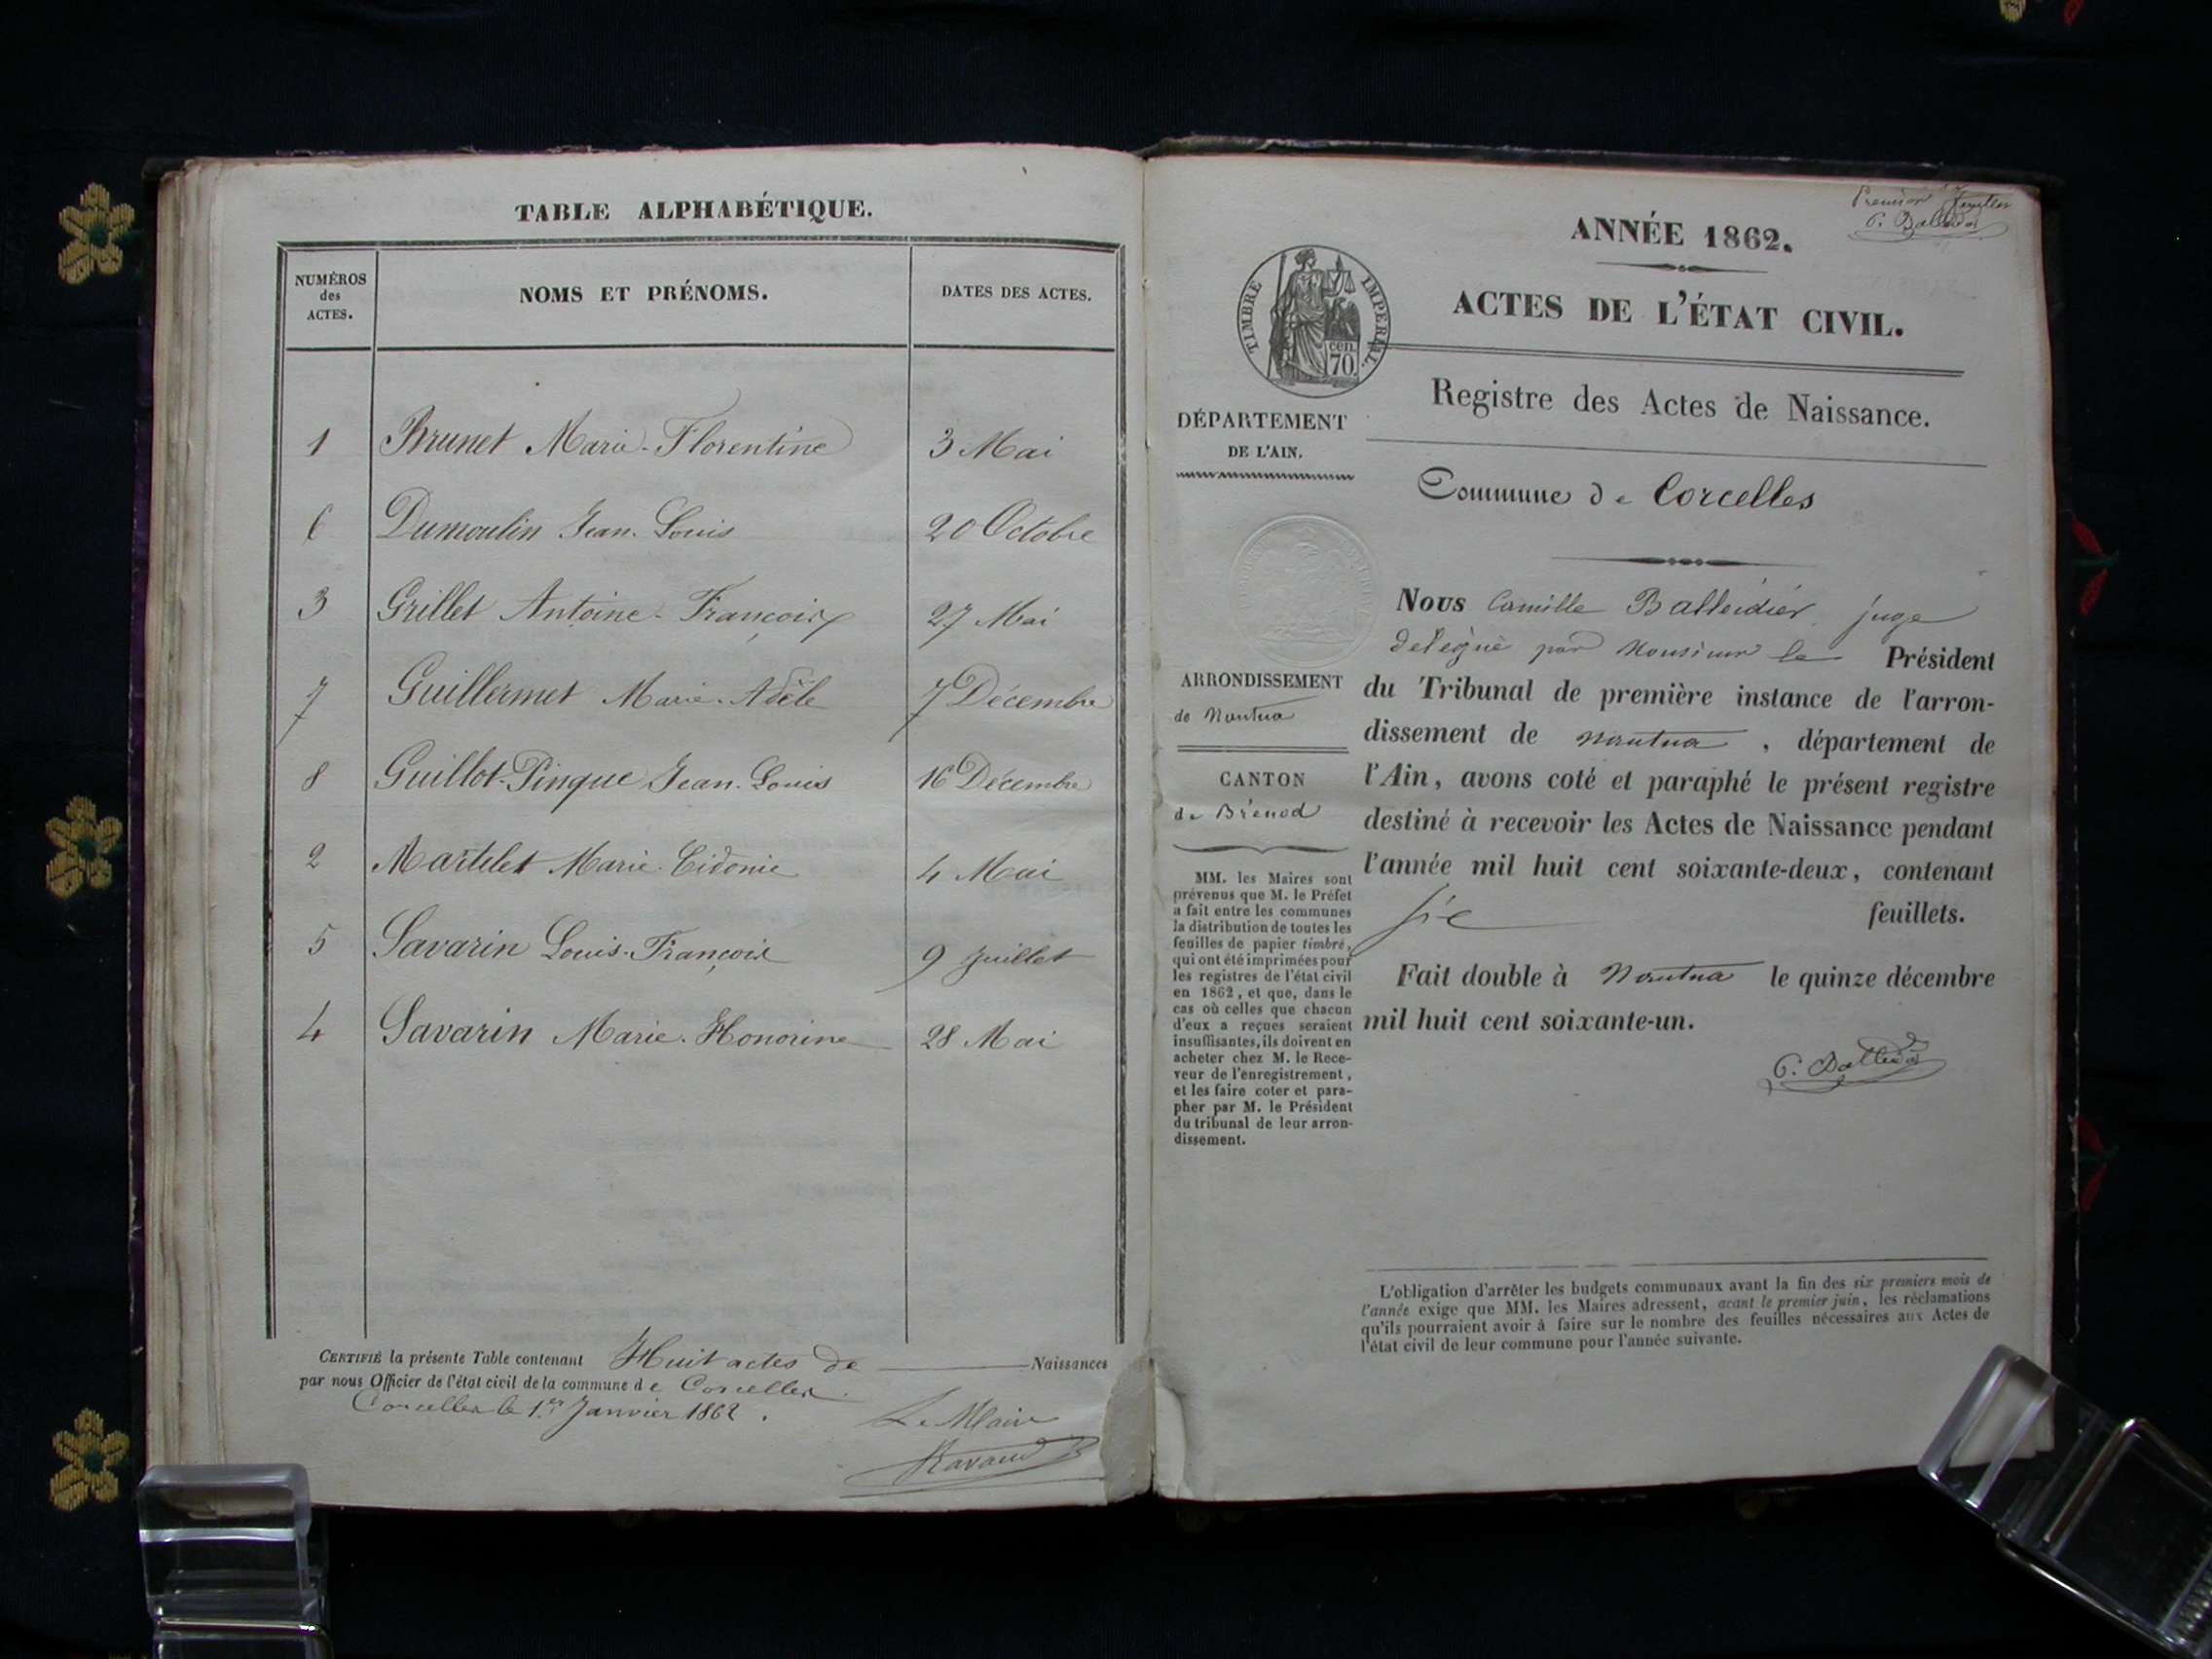 TABLE ALPHABÉTIQUE.
NUMÉROS
des
ACTES.
NOMS ET PRÉNOMS.
DATES DES ACTES.
1 Brunet Marie-Florentine 3 Mai
6 Dumoulin Jean-Louis 20 Octobre
3 Grillet Antoine-François 27 Mai
7 Guillermet Marie-Adèle 7 Décembre
8 Guillot-Pinque Jean-Louis 16 Décembre
2 Martelet Marie-Cidonie 4 Mai
5 Savarin Louis-François 9 Juillet
4 Savarin Marie-Honorine 28 Mai
CERTIFIÉ la présente Table contenant Huit actes de Naissances
par nous Officier de l'état civil de la commune de Corcelles.
Corcelles le 1.er Janvier 1862.
Le Maire
Ravaud
Premier feuillet
C. Balleidier
ANNÉE 1862.
TIMBRE IMPÉRIAL.
cen.
70.
ACTES DE L'ÉTAT CIVIL.
Registre des Actes de Naissance.
Commune de Corcelles
DÉPARTEMENT
DE L'AIN.
ARRONDISSEMENT
de Nantua
CANTON
de Brénod
MM. les Maires sont
prévenus que M. le Préfet
a fait entre les communes
la distribution de toutes les
feuilles de papier timbré,
qui ont été imprimées pour
les registres de l'état civil
en 1862, et que, dans le
cas où celles que chacun
d'eux a reçues seraient
insuffisantes, ils doivent en
acheter chez M. le Rece-
veur de l'enregistrement,
et les faire coter et para-
pher par M. le Président
du tribunal de leur arron-
dissement.
Nous Camille Balleidier, juge
délégué par Monsieur le Président
du Tribunal de première instance de l'arron-
dissement de Nantua, département de
l'Ain, avons coté et paraphé le présent registre
destiné à recevoir les Actes de Naissance pendant
l'année mil huit cent soixante-deux, contenant
six feuillets.
Fait double à Nantua le quinze décembre
mil huit cent soixante-un.
C. Balleidier
L'obligation d'arrêter les budgets communaux avant la fin des six premiers mois de
l'année exige que MM. les Maires adressent, avant le premier juin, les réclamations
qu'ils pourraient avoir à faire sur le nombre des feuilles nécessaires aux Actes de
l'état civil de leur commune pour l'année suivante.